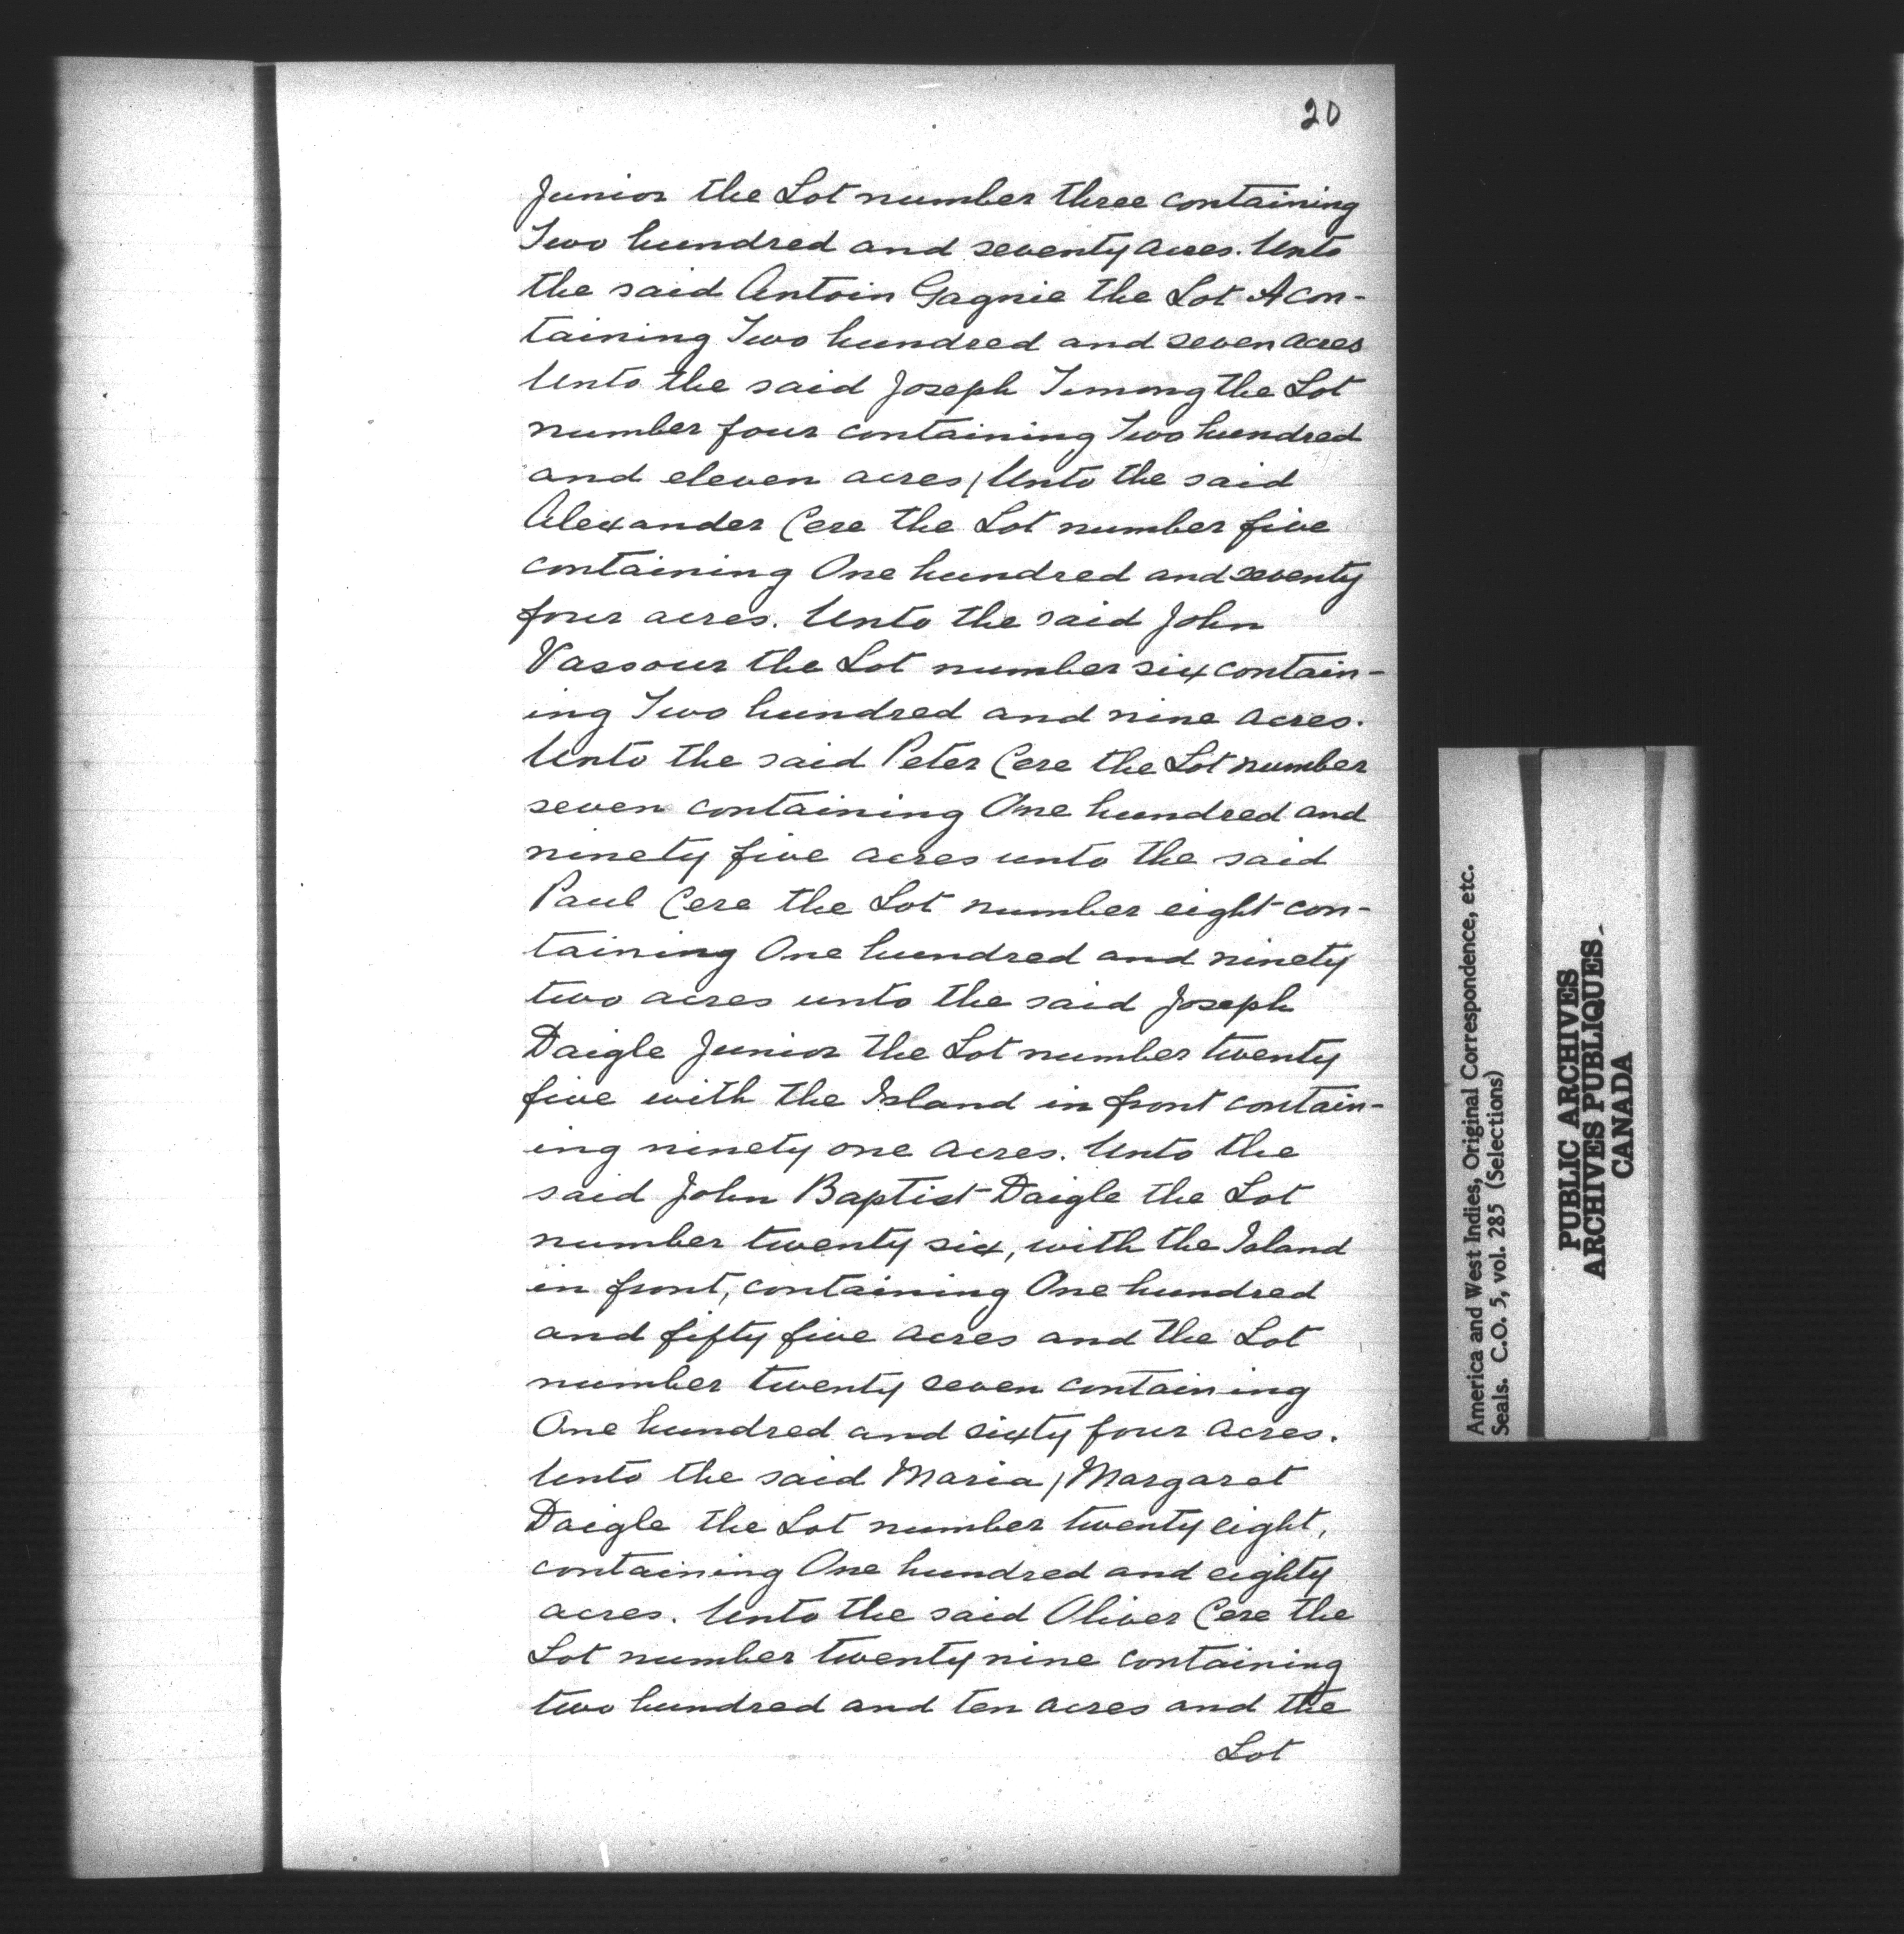 20
Junior the Lot number three containing
Two hundred and seventy acres. Unto
the said Antoin Gagnie the Lot A con-
taining Two hundred and seven acres
Unto the said Joseph the Lot
number four containing Two hundred
and eleven acres, Unto the said
Alexander Cere the Lot number five
containing One hundred and seventy
four acres. Unto the said John
Vassour the Lot number six contain-
ing Two hundred and nine acres.
Unto the said Peter Cere the Lot number
seven containing One hundred and
ninety five acres unto the said
Paul Cere the Lot number eight con-
taining One hundred and ninety
two acres unto the said Joseph
Daigle Junior the Lot number twenty
five with the Island in front contain-
ing ninety one acres. Unto the
said John Baptist Daigle the Lot
number twenty six, with the Island
in front, containing One hundred
and fifty five acres and the Lot
number twenty seven containing
One hundred and sixty four acres.
Unto the said Maria, Margaret
Daigle the Lot number twenty eight,
containing One hundred and eighty
acres. Unto the said Oliver Cere the
Lot number twenty nine containing
two hundred and ten acres and the
Lot
America and West Indies, Original Correspondence, etc.
Seals. C.O. 5, vol. 285 (Selections)
PUBLIC ARCHIVES
ARCHIVES PUBLIQUES
CANADA